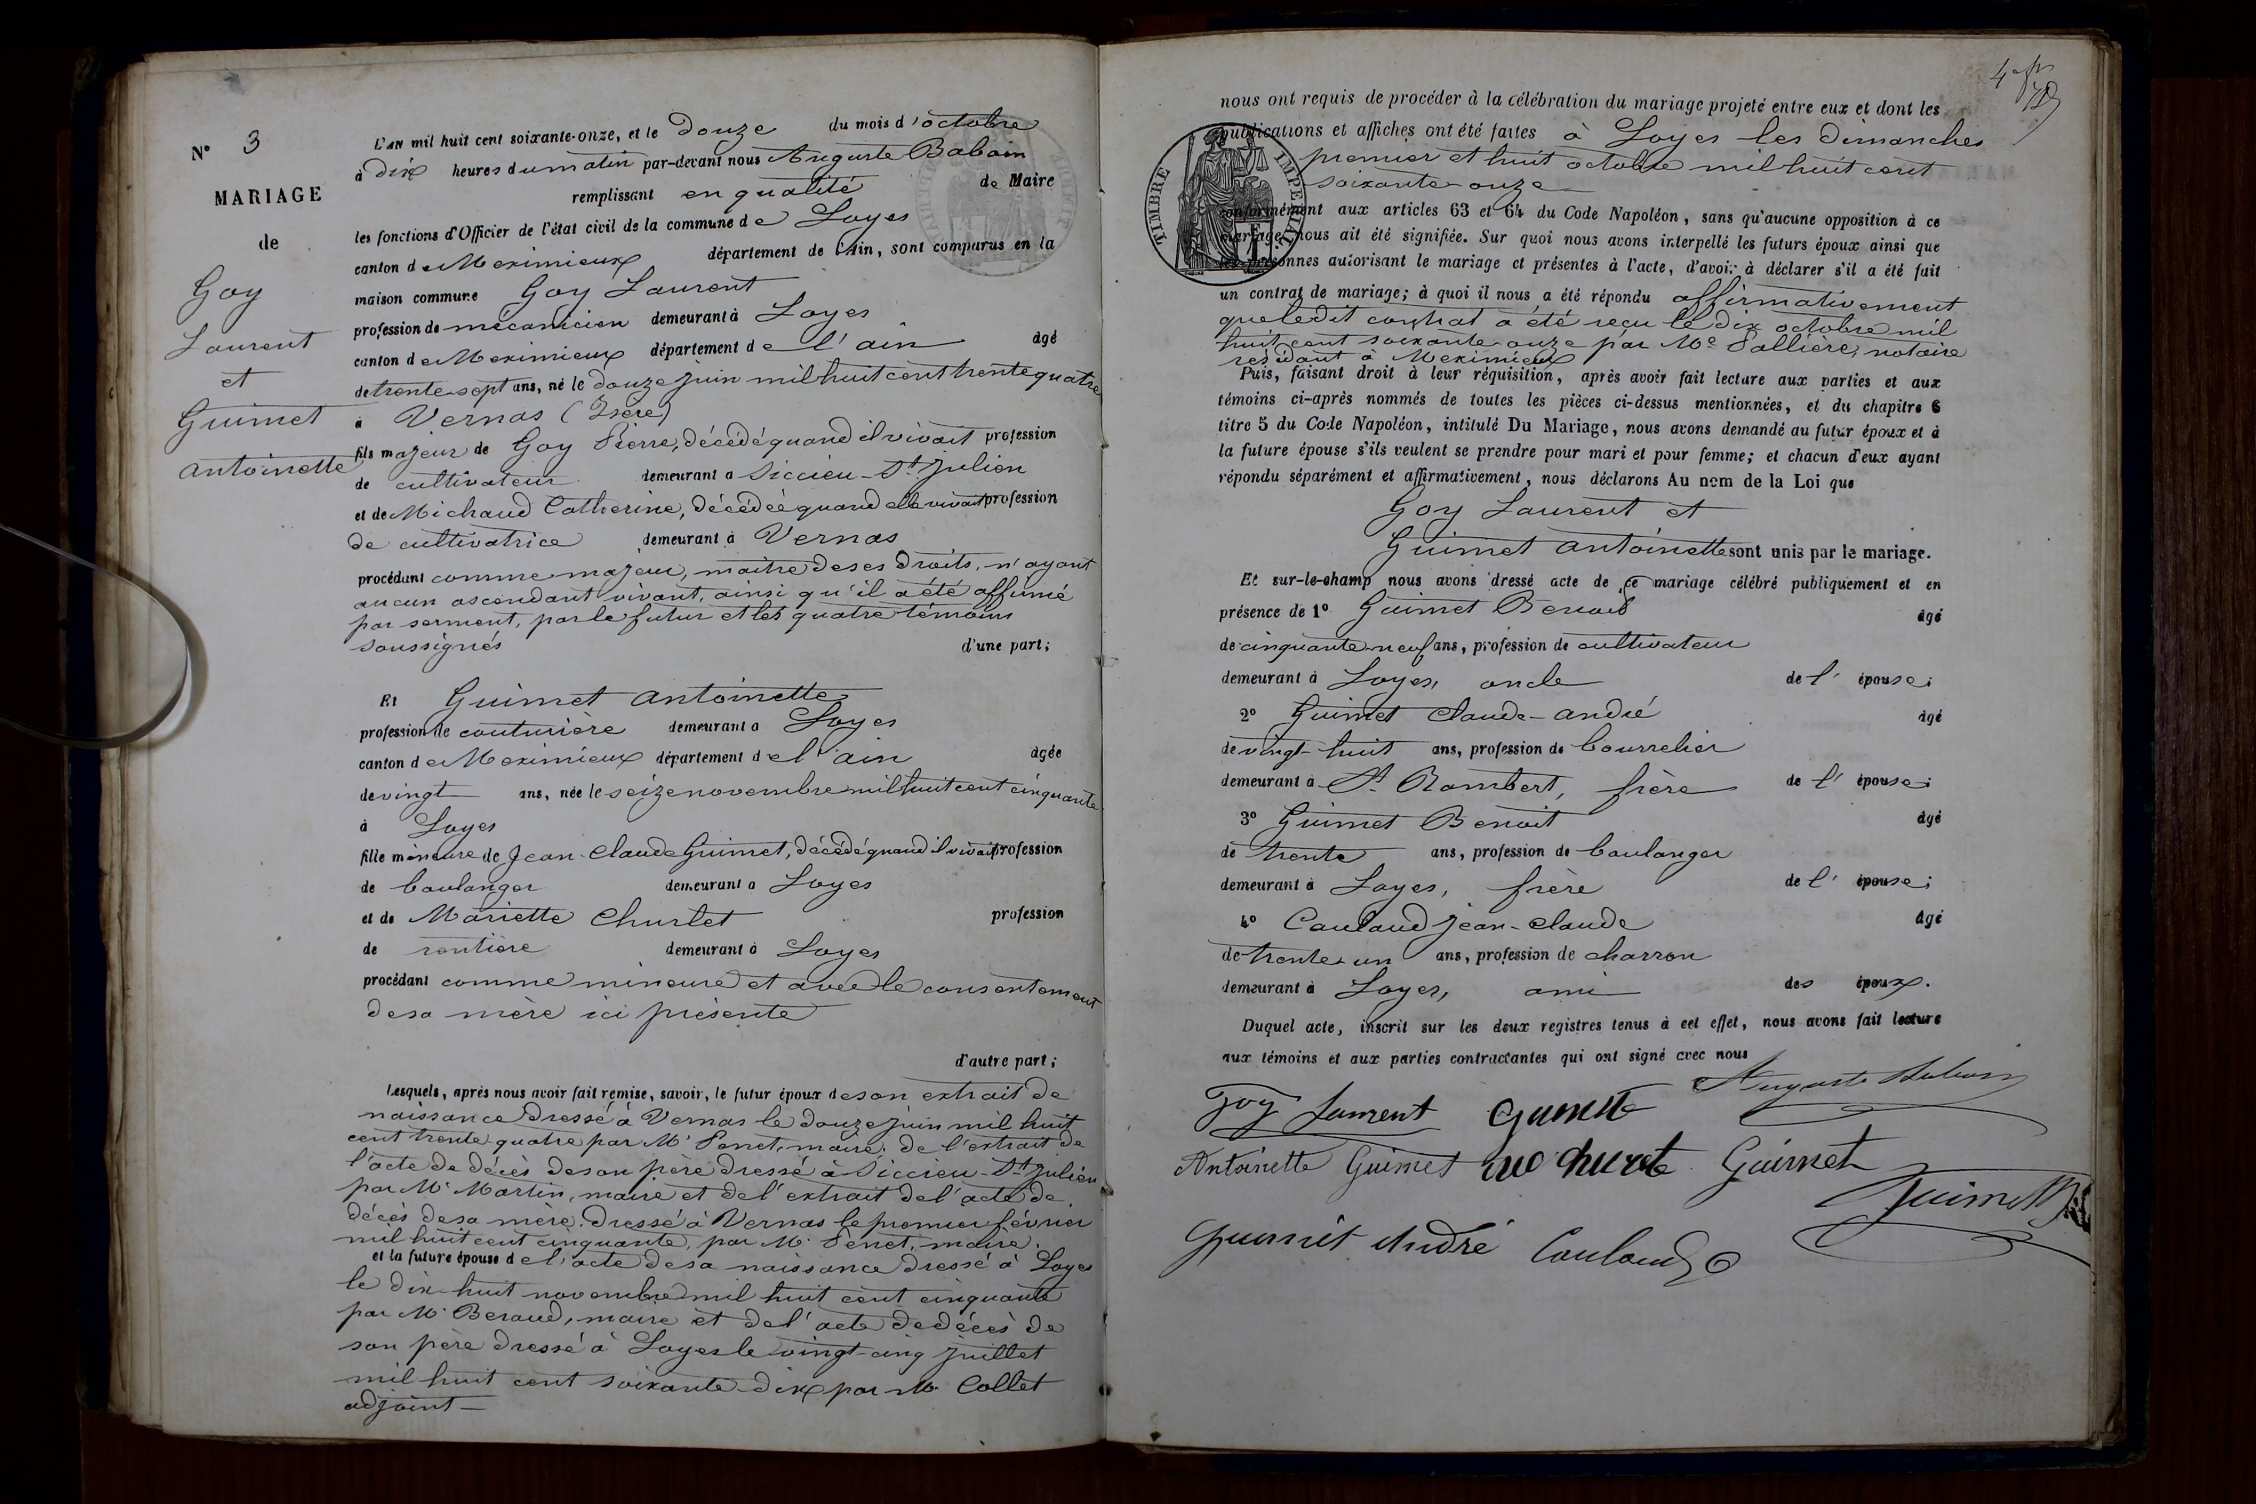 N° 3
MARIAGE
de
Goy
Laurent
et
Guimet
antoinette
L'an mil huit cent soixante-onze, et le douze du mois d'octobre
à dix heures du matin par-devant nous Auguste Baboin
remplissant en qualité de Maire
les fonctions d'Officier de l'état civil de la commune de Loyes
canton de Meximieux département de l'Ain, sont comparus en la
maison commune Goy Laurent
profession de mécanicien demeurant à Loyes
canton de Meximieux département de l'ain âgé
de trente sept ans, né le douze juin mil huit cent trente quatre
à Vernas (Isère)
fils majeur de Goy Pierre, décédé quand il vivait profession
de cultivateur demeurant à Siccieu-St Julien
et de Michaud Catherine, décédée quand elle vivait profession
de cultivatrice demeurant à Vernas
procédant comme majeur, maître de ses droits, n'ayant
aucun ascendant vivant, ainsi qu'il a été affirmé
par serment, par le futur et les quatre témoins
soussignés d'une part;
Et Guimet antoinette
profession de couturière demeurant à Loyes
canton de Meximieux département de l'ain âgée
de vingt ans, née le seize novembre mil huit cent cinquante
à Loyes
fille mineure de Jean-Claude Guimet, décédé quand il vivait profession
de boulanger demeurant à Loyes
et de Mariette Churlet profession
de rentière demeurant à Loyes
procédant comme mineure et avec le consentement
de sa mère ici présente
d'autre part;
Lesquels, après nous avoir fait remise, savoir, le futur époux de son extrait de
naissance dressé à Vernas le douze juin mil huit
cent trente quatre par Mr Penet, maire; de l'extrait de
l'acte de décès de son père dressé à Siccieu-St Julien
par Mr Martin, maire et de l'extrait de l'acte de
décès de sa mère dressé à Vernas le premier février
mil huit cent cinquante, par Mr Penet, maire.
et la future épouse de l'acte de sa naissance dressé à Loyes
le dix-huit novembre mil huit cent cinquante
par Mr Beraud, maire et de l'acte de décès de
son père dressé à Loyes le vingt-cinq juillet
mil huit cent soixante-dix par Mr Collet
adjoint
nous ont requis de procéder à la célébration du mariage projeté entre eux et dont les
publications et affiches ont été faites à Loyes les dimanches
premier et huit octobre mil huit cent
soixante onze
TIMBRE IMPERIAL
conformément aux articles 63 et 64 du Code Napoléon, sans qu'aucune opposition à ce
mariage nous ait été signifiée. Sur quoi nous avons interpellé les futurs époux ainsi que
les personnes autorisant le mariage et présentes à l'acte, d'avoir à déclarer s'il a été fait
un contrat de mariage; à quoi il nous a été répondu affirmativement
que ledit contrat a été reçu le dix octobre mil
huit cent soixante onze par Me Pallière, notaire
résidant à Meximieux
Puis, faisant droit à leur réquisition, après avoir fait lecture aux parties et aux
témoins ci-après nommés de toutes les pièces ci-dessus mentionnées, et du chapitre 6
titre 5 du Code Napoléon, intitulé Du Mariage, nous avons demandé au futur époux et à
la future épouse s'ils veulent se prendre pour mari et pour femme; et chacun d'eux ayant
répondu séparément et affirmativement, nous déclarons Au nom de la Loi que
Goy Laurent et
Guimet antoinette sont unis par le mariage.
Et sur-le-champ nous avons dressé acte de ce mariage célébré publiquement et en
présence de 1° Guimet Benoit âgé
de cinquante-neuf ans, profession de cultivateur
demeurant à Loyes, oncle de l'épouse;
2° Guimet Claude-andré âgé
de vingt-huit ans, profession de bourrelier
demeurant à St Rambert, frère de l'épouse;
3° Guimet Benoit âgé
de trente ans, profession de boulanger
demeurant à Loyes, frère de l'épouse;
4° Caulaud jean-claude âgé
de trente-un ans, profession de charron
demeurant à Loyes, ami des époux.
Duquel acte, inscrit sur les deux registres tenus à cet effet, nous avons fait lecture
aux témoins et aux parties contractantes qui ont signé avec nous
Auguste Baboin
Goy Laurent Guimet
Antoinette Guimet Guimet
Guimet
Guimet André Caulaud